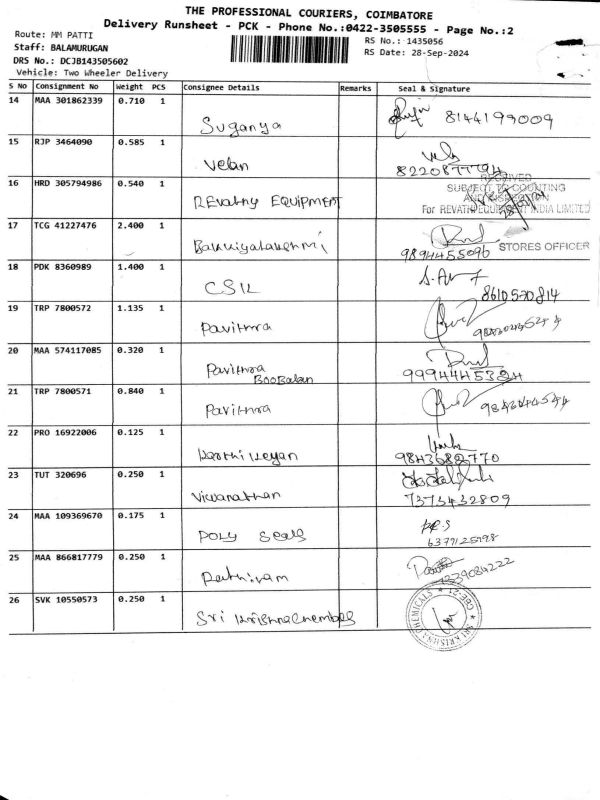 THE PROFESSIONAL COURIERS, COIMBATORE
Delivery Runsheet - PCK - Phone No.:0422-3505555 - Page No.:2
Route: MM PATTI
RS No.: 1435056
Staff: BALAMURUGAN
RS Date: 28-Sep-2024
DRS No.: DCJB143505602
Vehicle: Two Wheeler Delivery
S No Consignment No Weight PCS Consignee Details Remarks Seal & Signature
14 MAA 301862339 0.710 1 Suganya 8144199009
15 RJP 3464090 0.585 1 Velan
16 HRD 305794986 0.540 1 REvathy EQUIPMENT
RECEIVED
SUBJECT TO COUNTING
For REVATHI EQUIPMENT INDIA LIMITED
STORES OFFICER
17 TCG 41227476 2.400 1 9894455096
18 PDK 8360989 1.400 1 8610530814
19 TRP 7800572 1.135 1 Pavithra
20 MAA 574117085 0.320 1 Pavithra
BooBalan 9994445384
21 TRP 7800571 0.840 1 Pavithra
22 PRO 16922006 0.125 1 Karthikeyan 9843682770
23 TUT 320696 0.250 1 Viswanathan 7373432809
24 MAA 109369670 0.175 1 Poly Seals
25 MAA 866817779 0.250 1
26 SVK 10550573 0.250 1 Sri Krishna Chemicals
SRI KRISHNA CHEMICALS